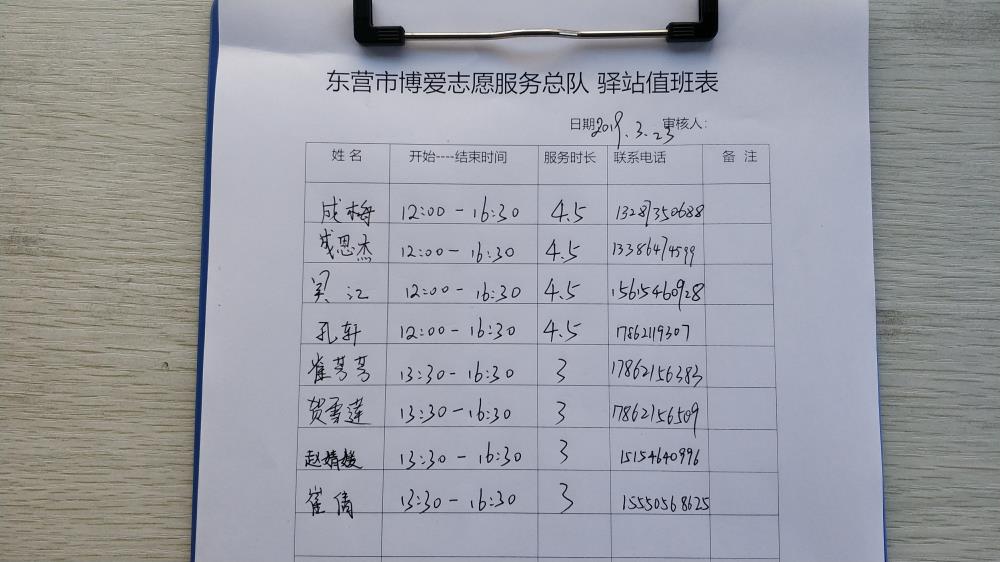 东营市博爱志愿服务总队 驿站值班表
日期2019.3.23 审核人:
姓名 开始----结束时间 服务时长 联系电话 备注
成梅 12:00-16:30 4.5 13287350688
成思杰 12:00-16:30 4.5 13386474599
吴江 12:00-16:30 4.5 15615460928
孔轩 12:00-16:30 4.5 17862119307
崔芩芩 13:30-16:30 3 17862156383
贺雪莲 13:30-16:30 3 17862156509
赵婧媛 13:30-16:30 3 15154640996
崔倩 13:30-16:30 3 15550568625